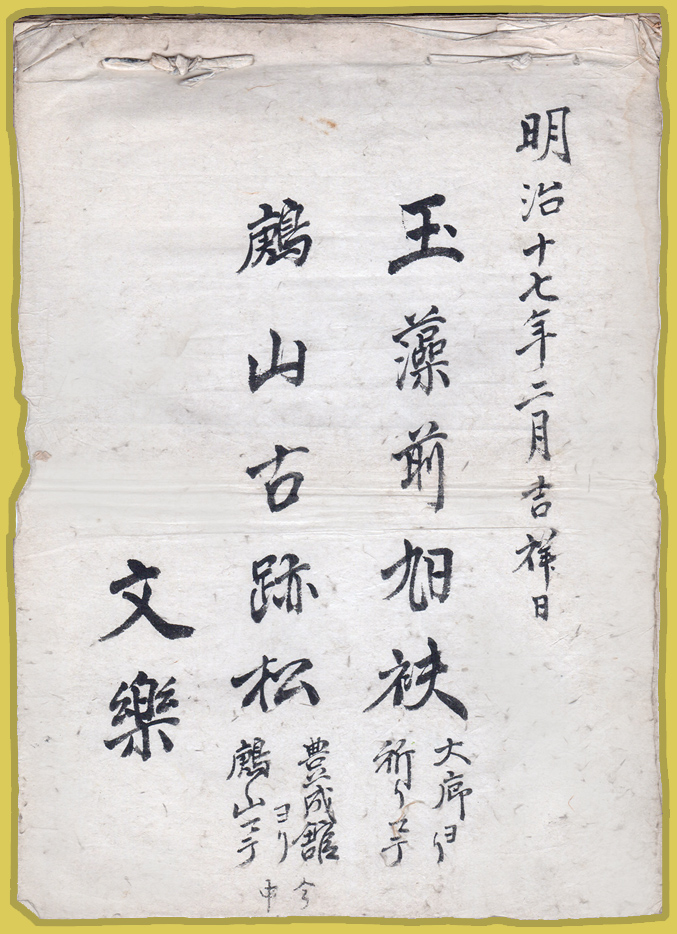 明治十七年二月吉祥日
玉藻前旭袂
大廊ヨリ
祈リマテ
鶊山古跡松
豊成舘ヨリ
鶊山マテ
文樂